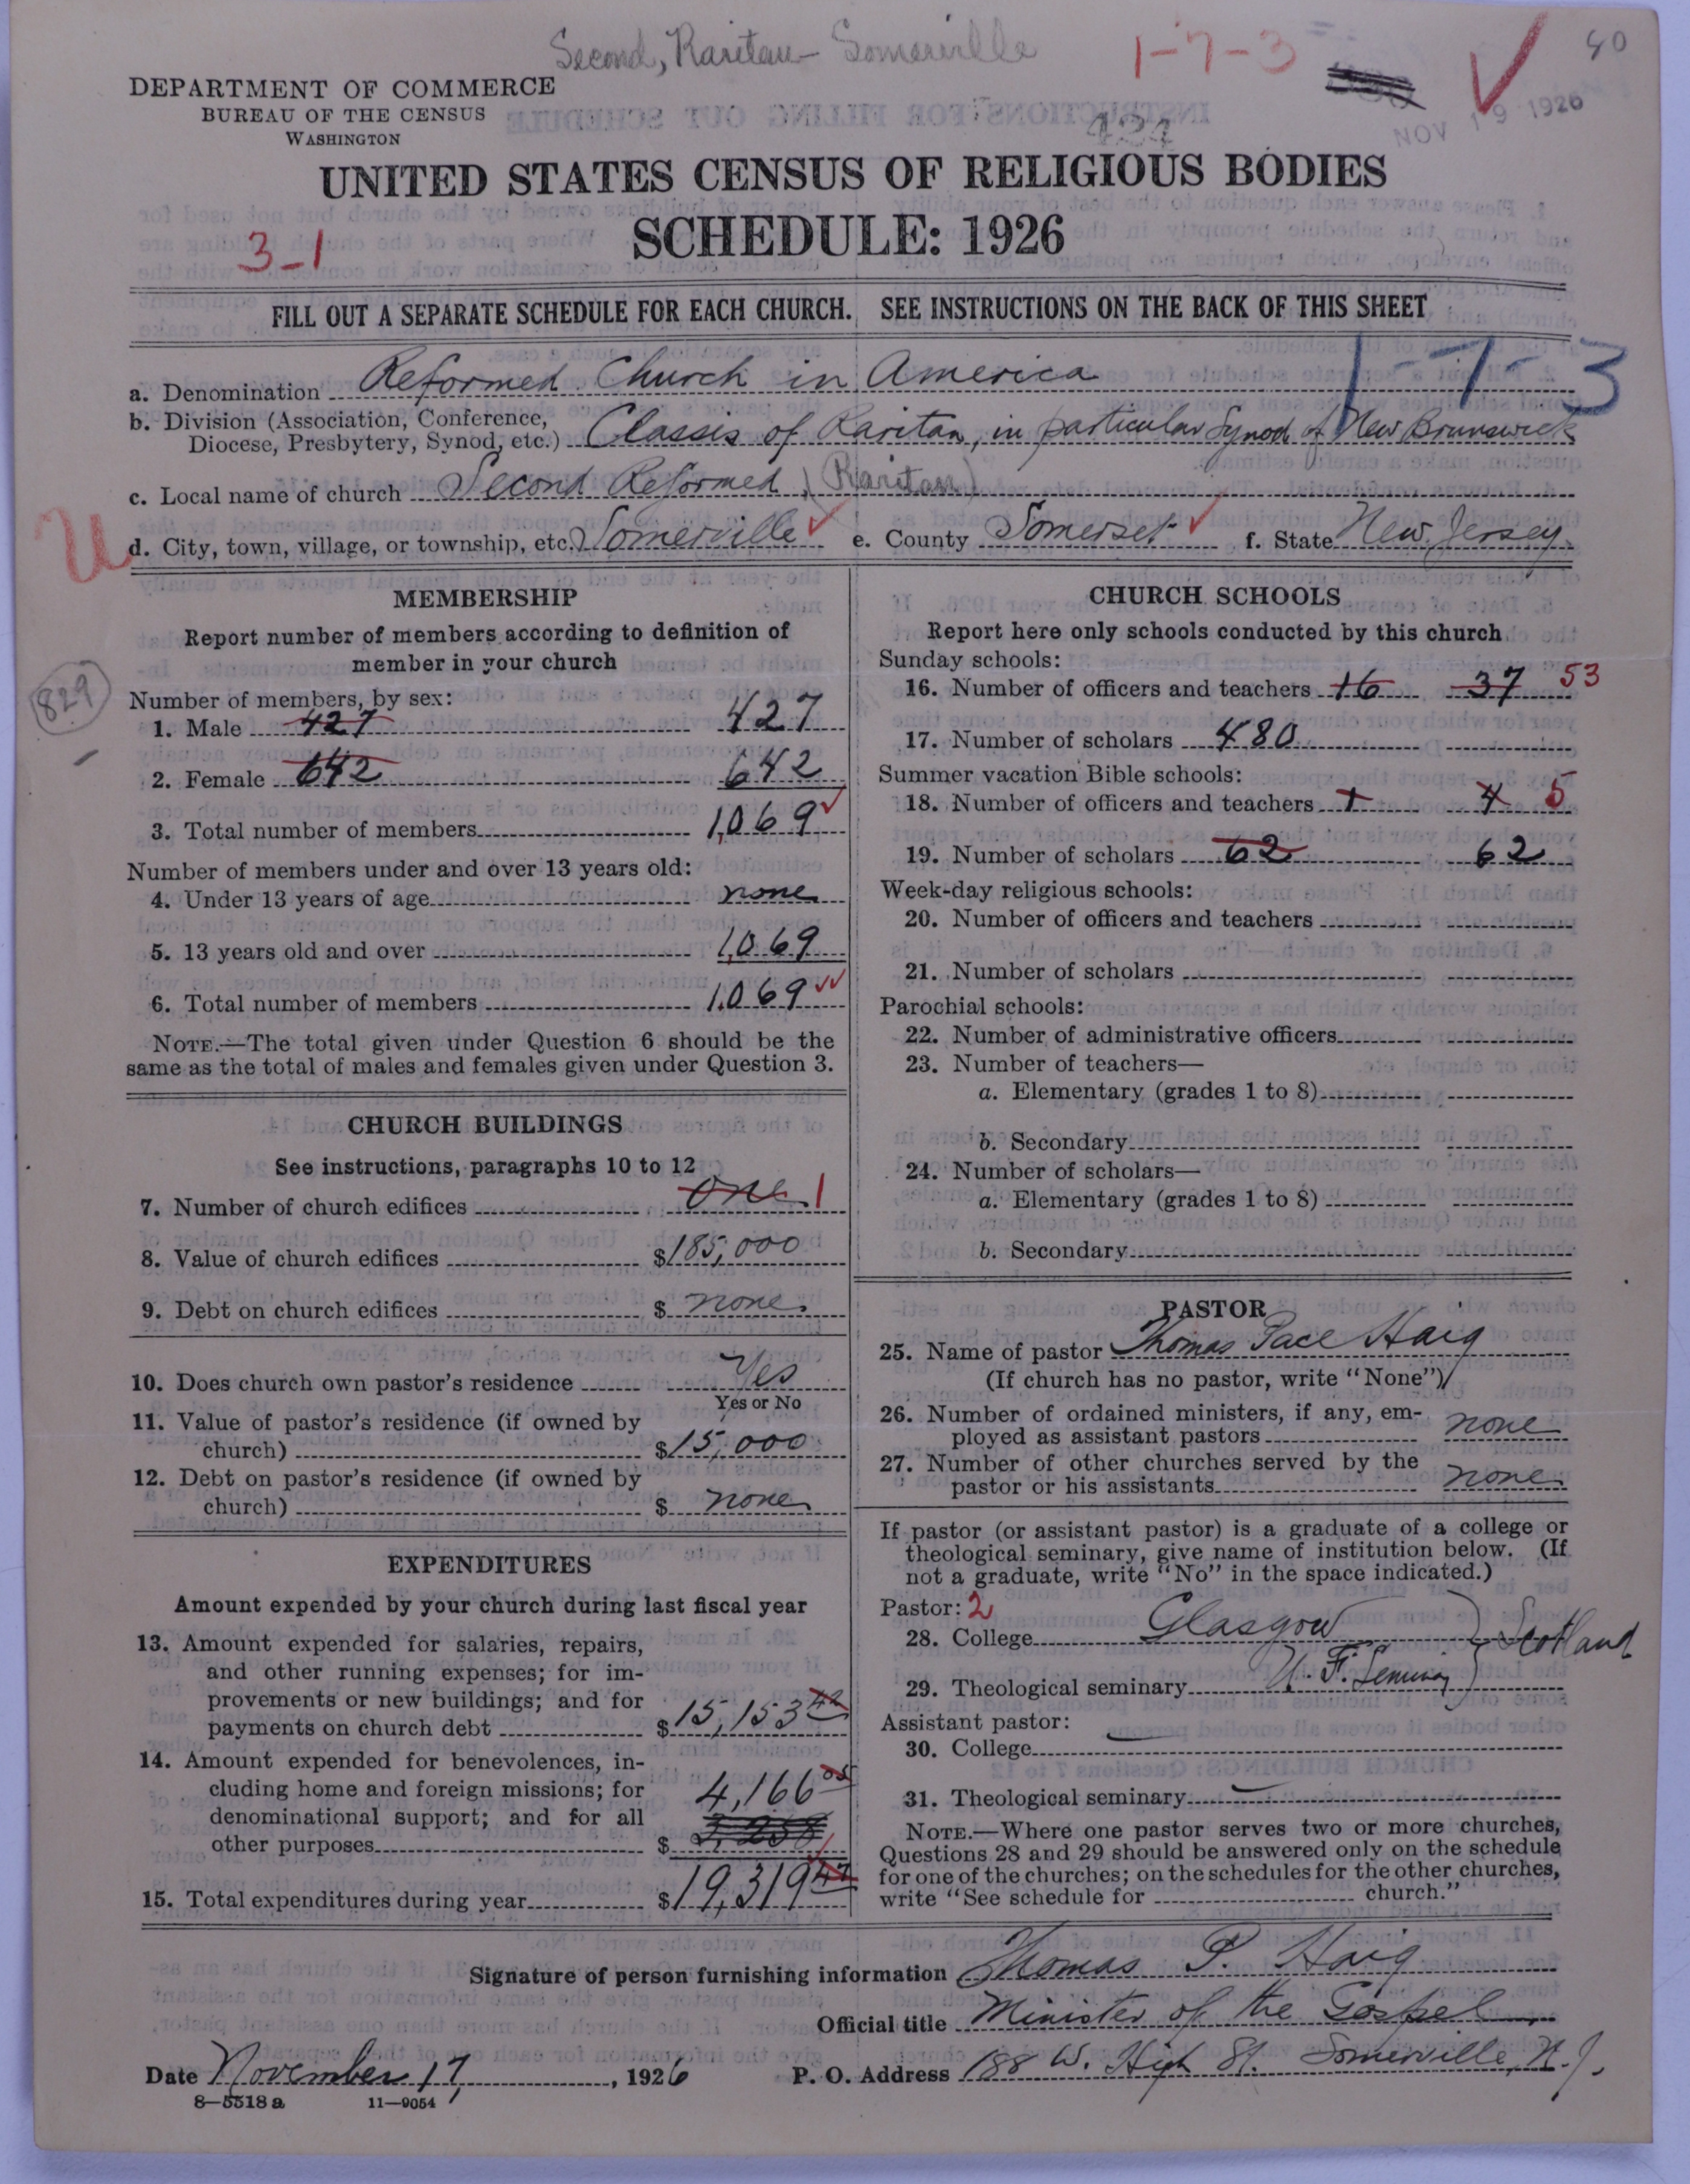 Second, Raritan - Somerville
1-7-3
40
DEPARTMENT OF COMMERCE
BUREAU OF THE CENSUS
WASHINGTON
424
NOV 19 1926
UNITED STATES CENSUS OF RELIGIOUS BODIES
SCHEDULE: 1926
3-1
FILL OUT A SEPARATE SCHEDULE FOR EACH CHURCH. SEE INSTRUCTIONS ON THE BACK OF THIS SHEET
1-7-3
a. Denomination Reformed Church in America
b. Division (Association, Conference,
Diocese, Presbytery, Synod, etc.) Classis of Raritan, in particular Synod of New Brunswick
c. Local name of church Second Reformed (Raritan)
U
d. City, town, village, or township, etc. Somerville e. County Somerset f. State New Jersey
MEMBERSHIP
Report number of members according to definition of
member in your church
829
Number of members, by sex:
1. Male 427 427
2. Female 642 642
3. Total number of members 1,069
Number of members under and over 13 years old:
4. Under 13 years of age none
5. 13 years old and over 1,069
6. Total number of members 1,069
NOTE.—The total given under Question 6 should be the
same as the total of males and females given under Question 3.
CHURCH BUILDINGS
See instructions, paragraphs 10 to 12
7. Number of church edifices one 1
8. Value of church edifices $185,000
9. Debt on church edifices $ none
10. Does church own pastor's residence Yes
Yes or No
11. Value of pastor's residence (if owned by
church) $15,000
12. Debt on pastor's residence (if owned by
church) $ none
EXPENDITURES
Amount expended by your church during last fiscal year
13. Amount expended for salaries, repairs,
and other running expenses; for im-
provements or new buildings; and for
payments on church debt $15,153 42
14. Amount expended for benevolences, in-
cluding home and foreign missions; for
denominational support; and for all
other purposes $ 4,166 05
15. Total expenditures during year $19,319 47
CHURCH SCHOOLS
Report here only schools conducted by this church
Sunday schools:
16. Number of officers and teachers 16 37 53
17. Number of scholars 480
Summer vacation Bible schools:
18. Number of officers and teachers 1 4 5
19. Number of scholars 62 62
Week-day religious schools:
20. Number of officers and teachers
21. Number of scholars
Parochial schools:
22. Number of administrative officers
23. Number of teachers—
a. Elementary (grades 1 to 8)
b. Secondary
24. Number of scholars—
a. Elementary (grades 1 to 8)
b. Secondary
PASTOR
25. Name of pastor Thomas Pace Haig
(If church has no pastor, write "None")
26. Number of ordained ministers, if any, em-
ployed as assistant pastors none
27. Number of other churches served by the
pastor or his assistants none
If pastor (or assistant pastor) is a graduate of a college or
theological seminary, give name of institution below. (If
not a graduate, write "No" in the space indicated.)
Pastor: 2
28. College Glasgow } Scotland
29. Theological seminary U. F. Seminary
Assistant pastor:
30. College
31. Theological seminary
NOTE.—Where one pastor serves two or more churches,
Questions 28 and 29 should be answered only on the schedule
for one of the churches; on the schedules for the other churches,
write "See schedule for church."
Signature of person furnishing information Thomas P. Haig
Official title Minister of the Gospel
Date November 17, 1926 P. O. Address 188 W. High St. Somerville, N. J.
8—5518 a 11—9054